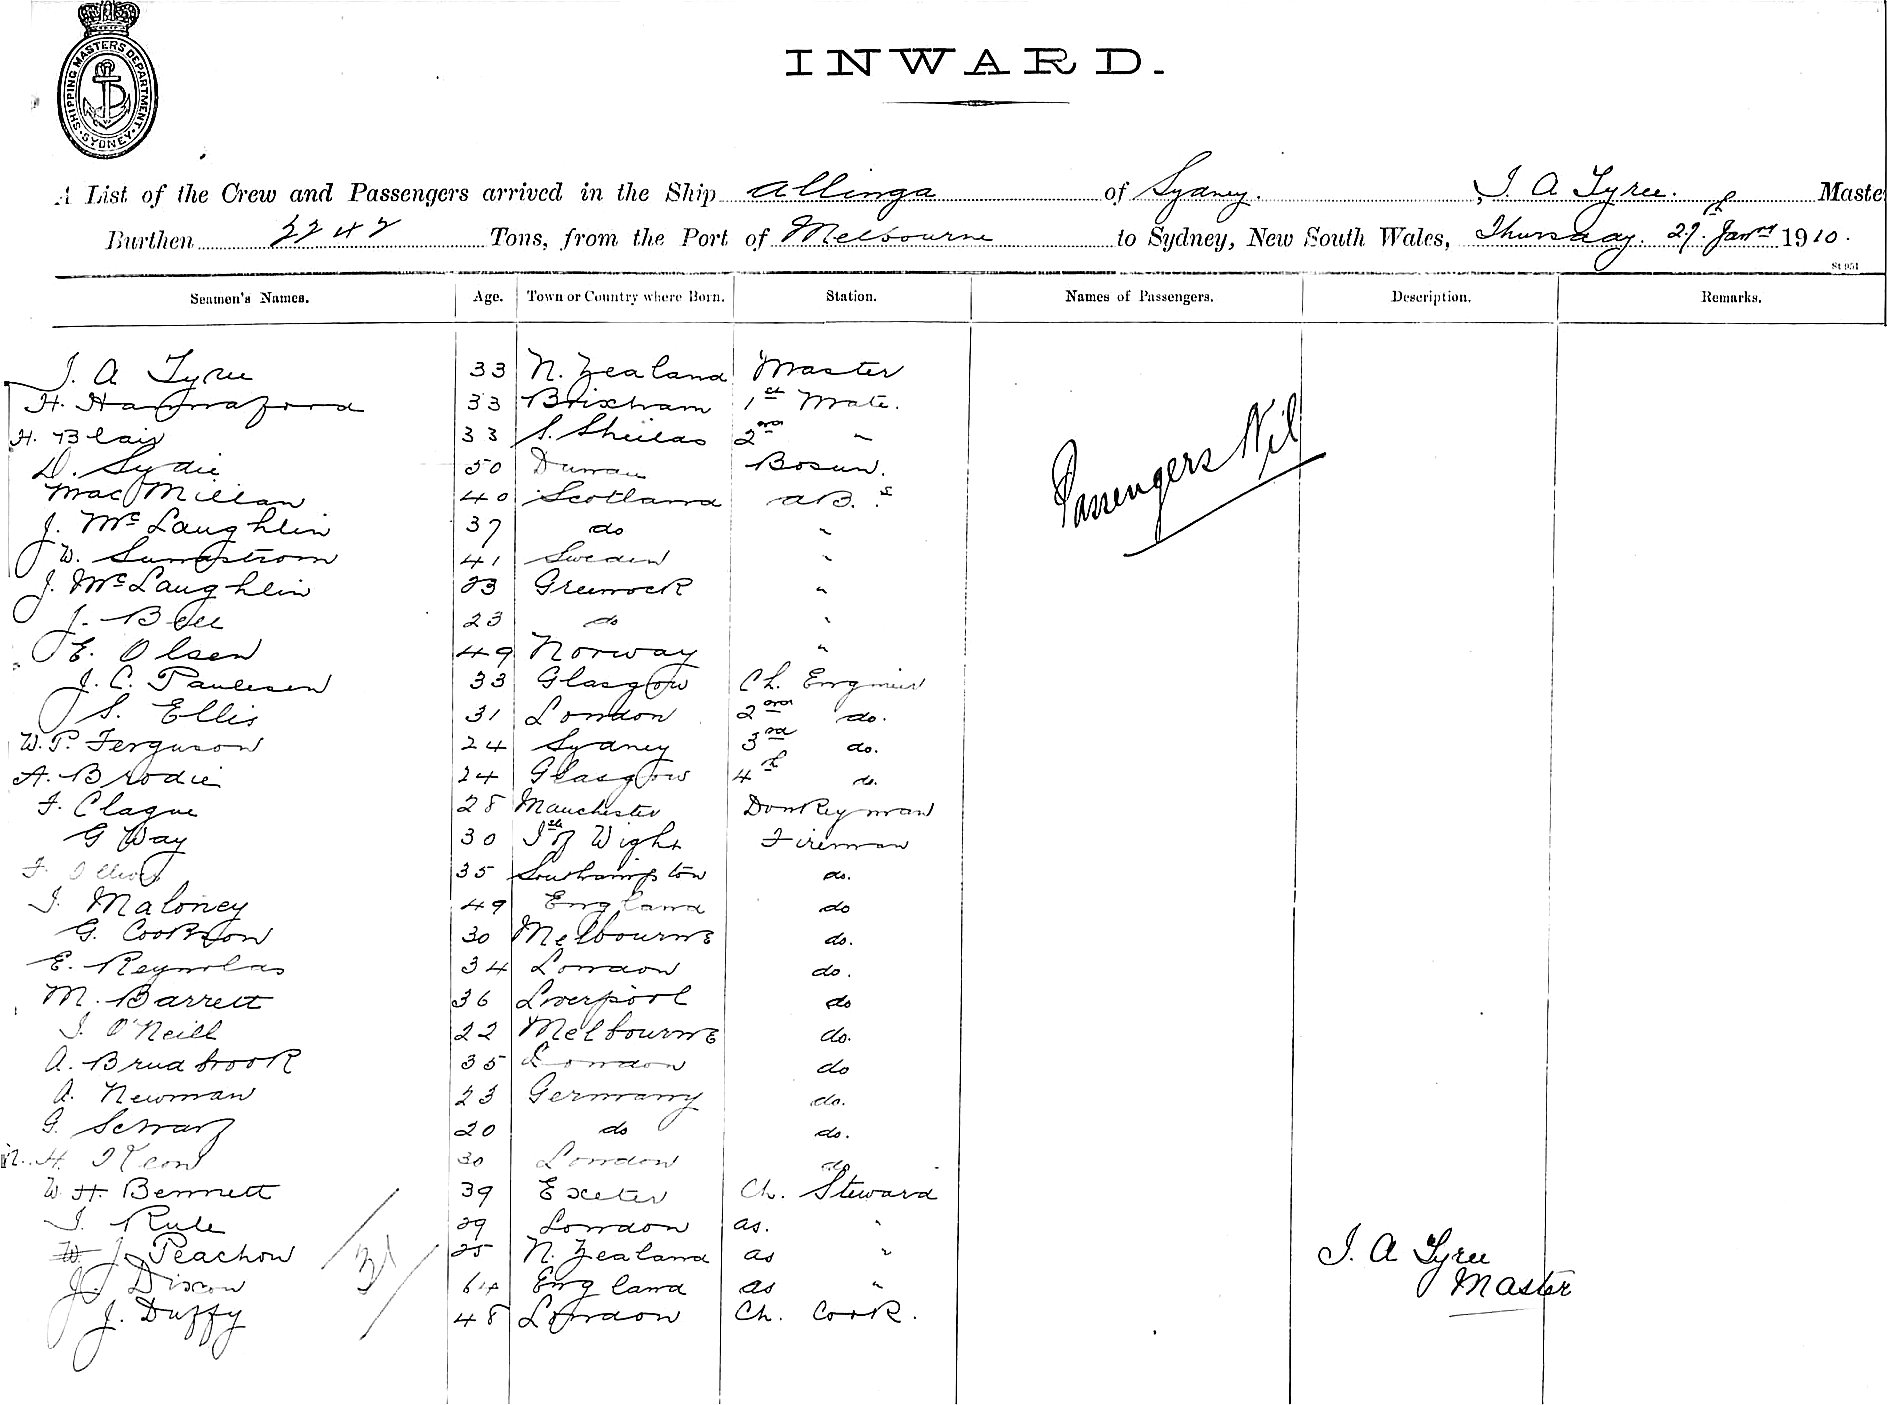 SHIPPING MASTERS DEPARTMENT. SYDNEY
INWARD.
A List of the Crew and Passengers arrived in the Ship Allinga of Sydney. J. A Tyree. Maste
Burthen 2242 Tons, from the Port of Melbourne to Sydney, New South Wales, Thursday. 27th Janry 1910.
St 951
Seamen's Names. Age. Town or Country where Born. Station. Names of Passengers. Description. Remarks.
J. A Tyree 33 N. Zealand Master
H. Hannaford 33 Brixham 1st Mate.
H. Blair 33 S. Sheilds 2nd "
D. Sydie 50 Bosun.
MacMillan 40 Scotland AB.s
J. McLaughlin 37 do "
W. Sundstrom 41 Sweden "
J. McLaughlin 23 Greenock "
J. Bell 23 do "
E. Olsen 49 Norway "
J. C. Paulesen 33 Glasgow Ch. Engineer
S. Ellis 31 London 2nd do.
W. P. Ferguson 24 Sydney 3rd do.
A. Brodie 24 Glasgow 4th do.
F. Clague 28 Manchester Donkeyman
G Way 30 Isle of Wight Fireman
F. 35 Southampton do.
J. Maloney 49 England do
G. Cookson 30 Melbourne do.
E. Reynolds 34 London do.
M. Barrett 36 Liverpool do
J. O'Neill 22 Melbourne do.
A. Brudbrook 35 London do
A. Newman 23 Germany do.
G. Schwarz 20 do do.
H. 30 London do
W. H. Bennett 39 Exeter Ch. Steward
J. Rule 29 London as. "
W. J. Peachon 25 N. Zealand as "
J. Dixon 64 England as "
J. Duffy 48 London Ch. Cook.
31
Passengers Nil
J. A Tyree
Master